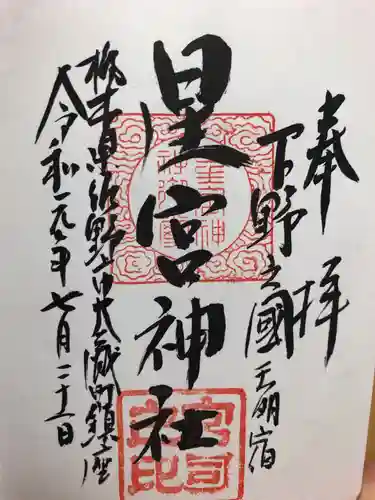 奉拝
下野之國天明宿
星宮神社
栃木県佐野市大蔵町鎮座
令和元年七月二十一日
宮司之印